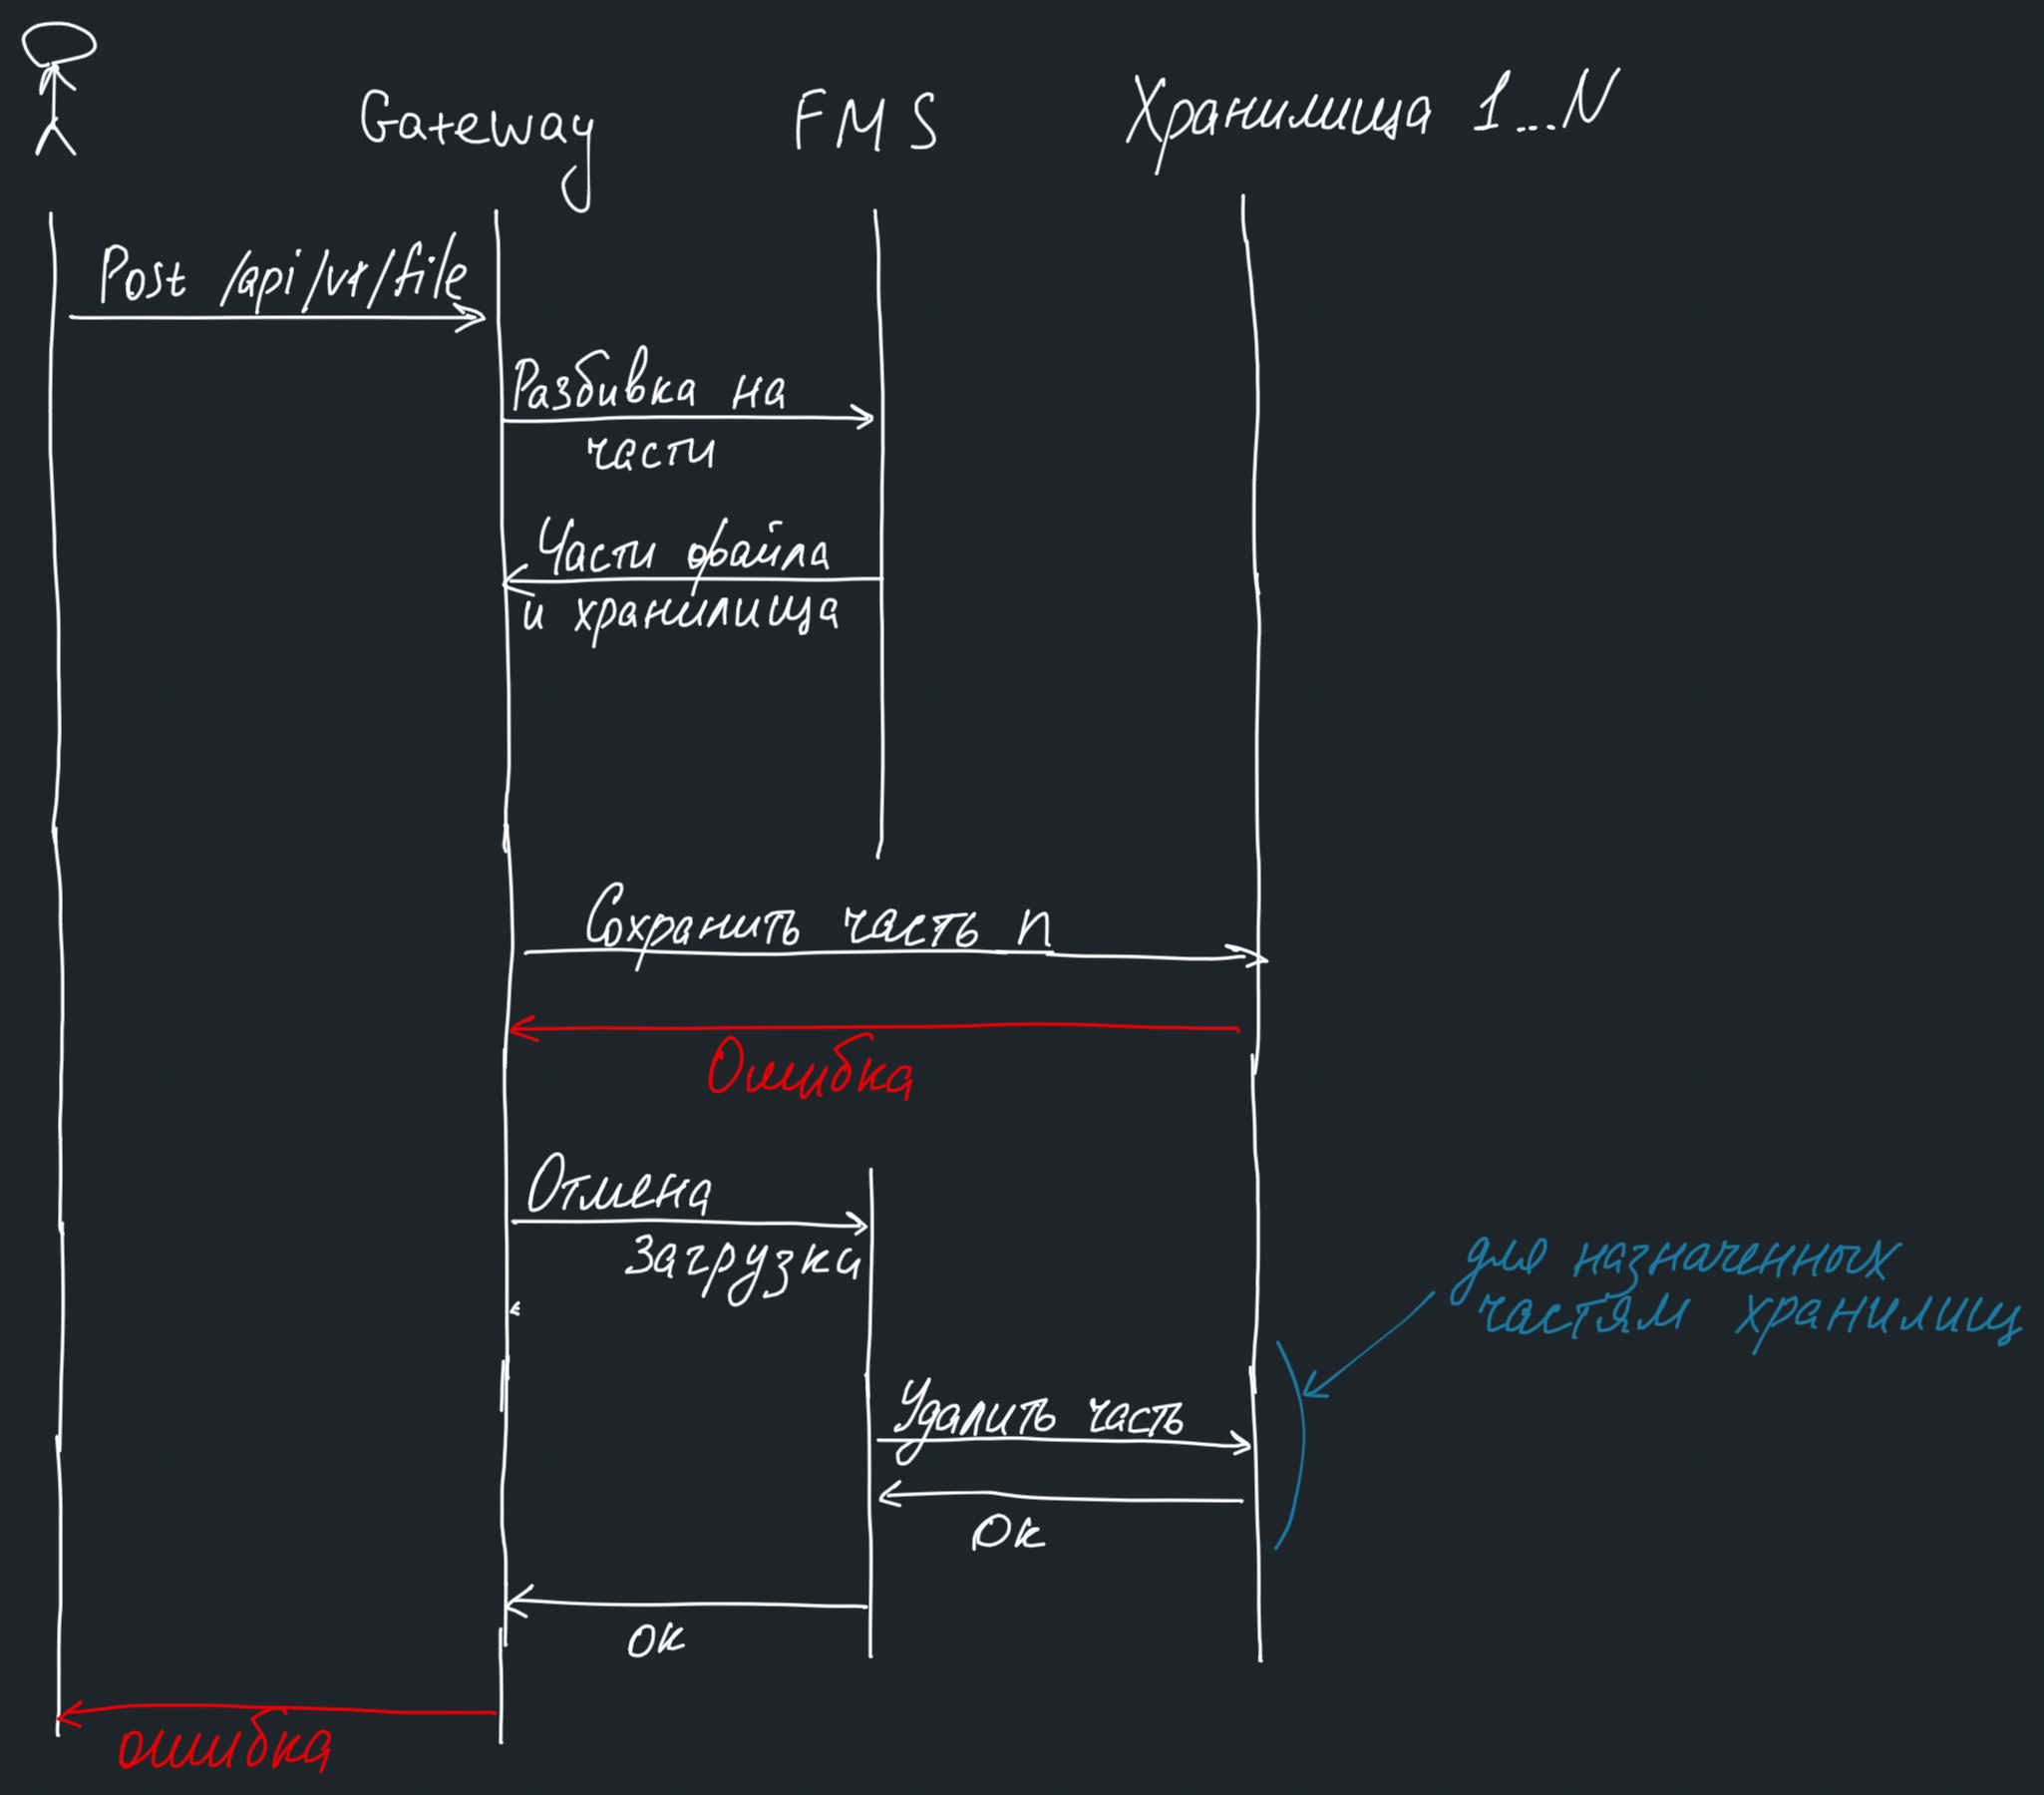 Gateway
FMS
Хранилища 1...N
Post /api/v1/file
Разбивка на
части
Части файла
и хранилища
Сохранить часть n
Ошибка
Отмена
загрузки
для назначенных
частям хранилищ
Удалить часть
Ок
ок
ошибка